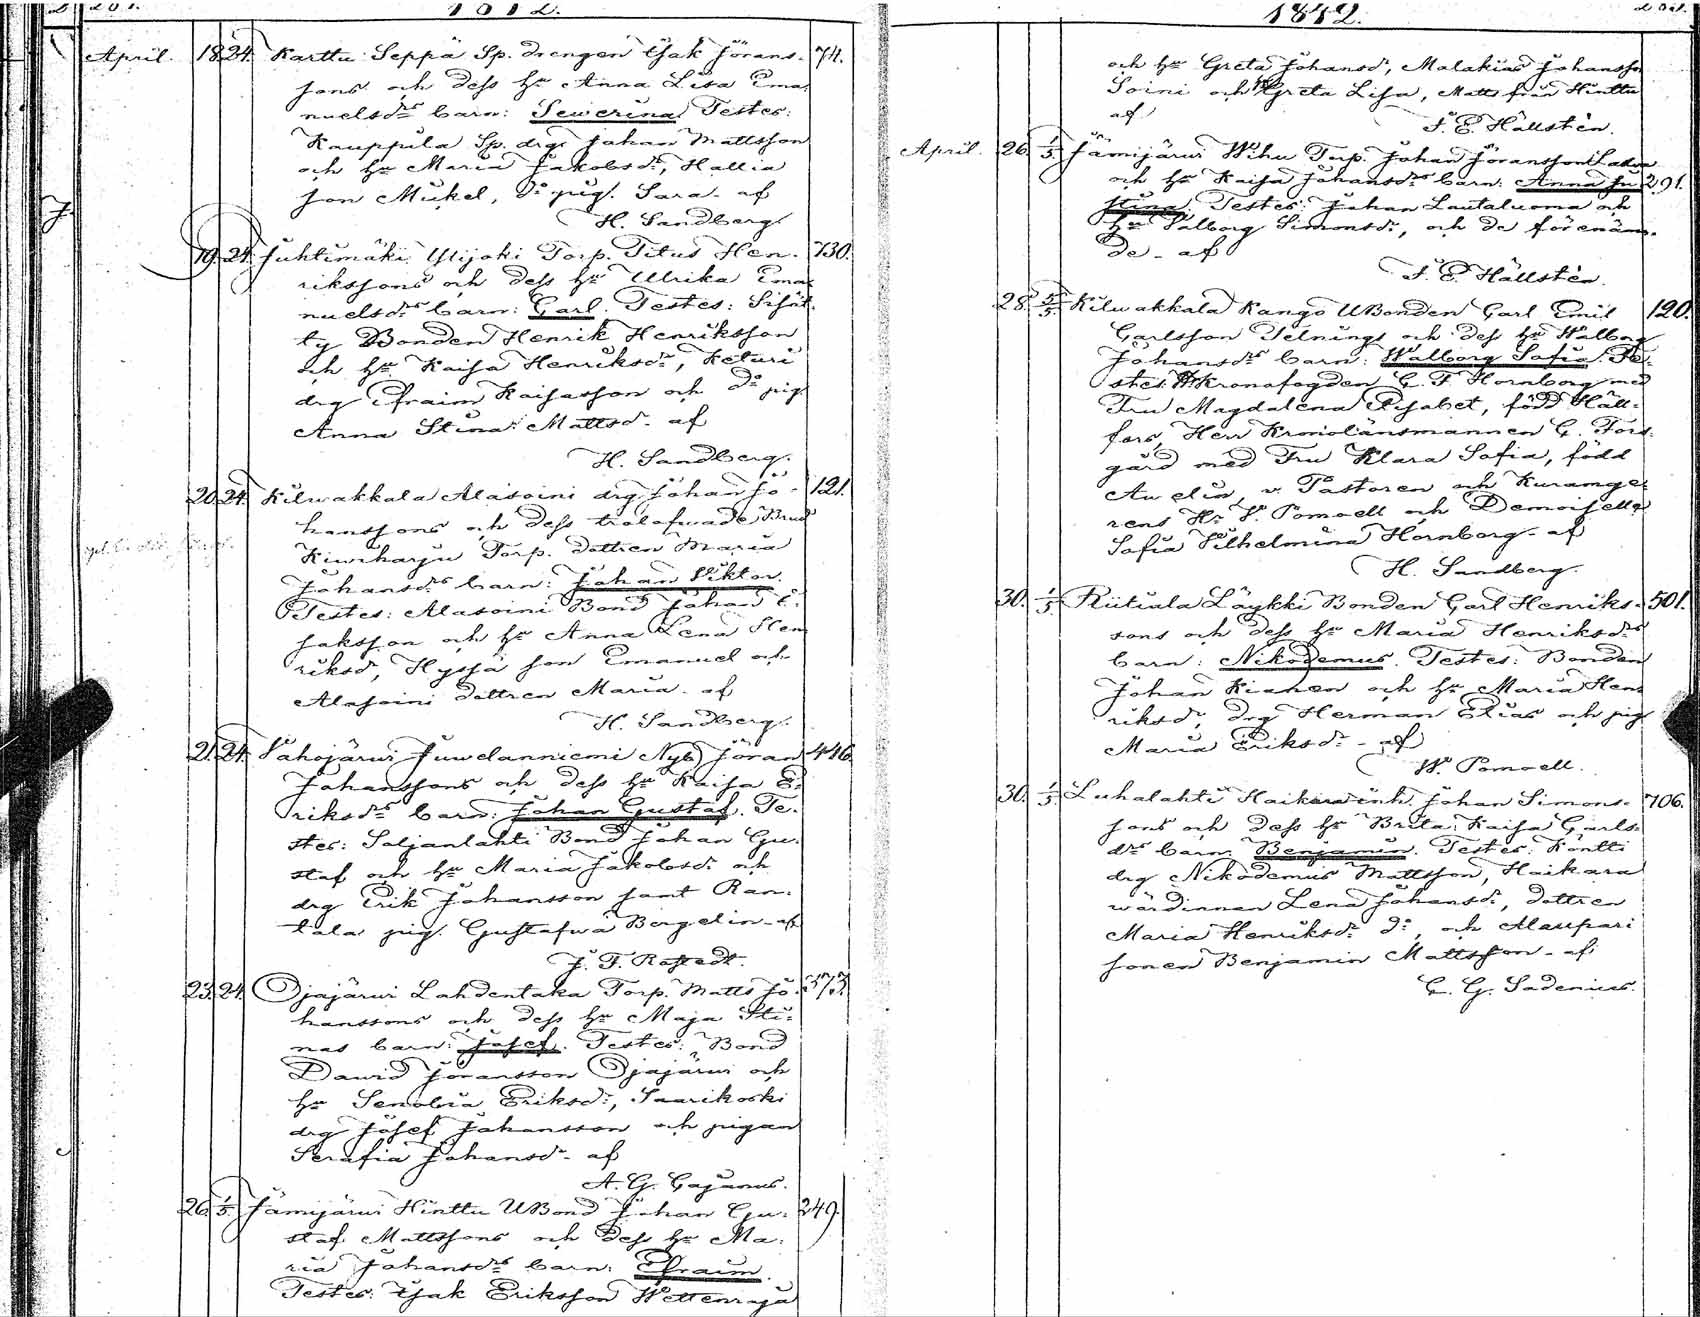 1842.
April. 18. 24. Karttu Seppä Sp. drengen Isak Jörans- 74.
sons och dess hu Anna Lisa Ema-
nuelsdrs barn: Sewerina Testes:
Kauppila Sp. drg Johan Mattsson
och hu Maria Jakobsdr, Hallia
son Mickel, do pig. Sara. af
H. Sandberg.
19. 24. Juhtimäki Ylijoki Torp. Titus Hen- 730.
rikssons och dess hu Ulrika Ema-
nuelsdrs barn: Carl. Testes:
Bonden Henrik Henriksson
och hu Kaisa Henriksdr, Keturi
drg Efraim Kaisasson och do pig.
Anna Stina Mattsdr. af
H. Sandberg.
20. 24. Kilwakkala Alasoini drg Johan Jo- 121.
hanssons och dess trolofwade Brud
Kiwiharju Torp. dottren Maria
Johansdrs barn: Johan Viktor.
Testes: Alasoini Bond Johan I-
saksson och hu Anna Lena Hen-
riksdr, Hyssä son Emanuel och
Alasoini dottren Maria. af
H. Sandberg.
21. 24. Vahojärwi Juwelanniemi Nyb. Jöran 446.
Johanssons och dess hu Kaisa E-
riksdrs barn: Johan Gustaf. Te-
stes: Saljanlahti Bond Johan Gu-
staf och hu Maria Jakobsdr och
drg Erik Johansson samt Ran-
tala pig. Gustafwa Bergelin. af
J. F. Rostedt.
23. 24. Ojajärwi Lahdentaka Torp. Matts Jo- 373.
hanssons och dess hu Maja Sti-
nas barn: Josef. Testes: Bond
Dawid Jöransson Ojajärwi och
hu Senobia Eriksdr, Saarikoski
drg Josef Johansson och pigan
Serafia Johansdr. af
A. G. Cajanus.
26. 1/5 Jämijärwi Hinttu UBond Johan Gu- 249.
staf Mattssons och dess hu Ma-
ria Johansdrs barn: Efraim.
Testes: Isak Eriksson Wettenraja
1842.
och hu Greta Johansdr, Malakias Johansson
Soini och Greta Lisa, Matts från Hinttu
af
F. E. Hällstén.
April. 26. 1/5 Jämijärwi Wihu Torp. Johan Jöransson Latva
och hu Kaisa Johansdrs barn: Anna Ju- 291.
stina. Testes: Johan Lautaluoma och
hu Valborg Simonsdr, och de förenäm-
de. af
F. E. Hällstén.
28. 5/5 Kilwakkala Kango UBonden Carl Emil 120.
Carlsson Telnings och dess hu Walborg
Johansdrs barn: Walborg Sofia. Te-
stes: Kronofogden C. F. Hornborg med
Fru Magdalena Elisabet, född Häll-
fors, Herr Kronolänsmannen G. Fors-
gård med Fru Klara Sofia, född
Aulin, v. Pastoren och Kuramge-
rens Hr V. Pomoell och Demoiselle
Sofia Vilhelmina Hornborg. af
H. Sandberg.
30. 1/5 Riitiala Läykki Bonden Carl Henriks- 501.
sons och dess hu Maria Henriksdrs
barn: Nikodemus. Testes: Bonden
Johan Kianen och hu Maria Hen-
riksdr, drg Herman Elias och pig.
Maria Eriksdr. af
W. Pomoell.
30. 1/5 Luhalahti Haikara inh. Johan Simons- 706.
sons och dess hu Brita Kaisa Carls-
drs barn: Benjamin. Testes: Kontti
drg Nikodemus Mattsson, Haikara
wärdinnan Lena Johansdr, dottren
Maria Henriksdr do, och Alaupari
sonen Benjamin Mattsson. af
C. G. Sadenius.